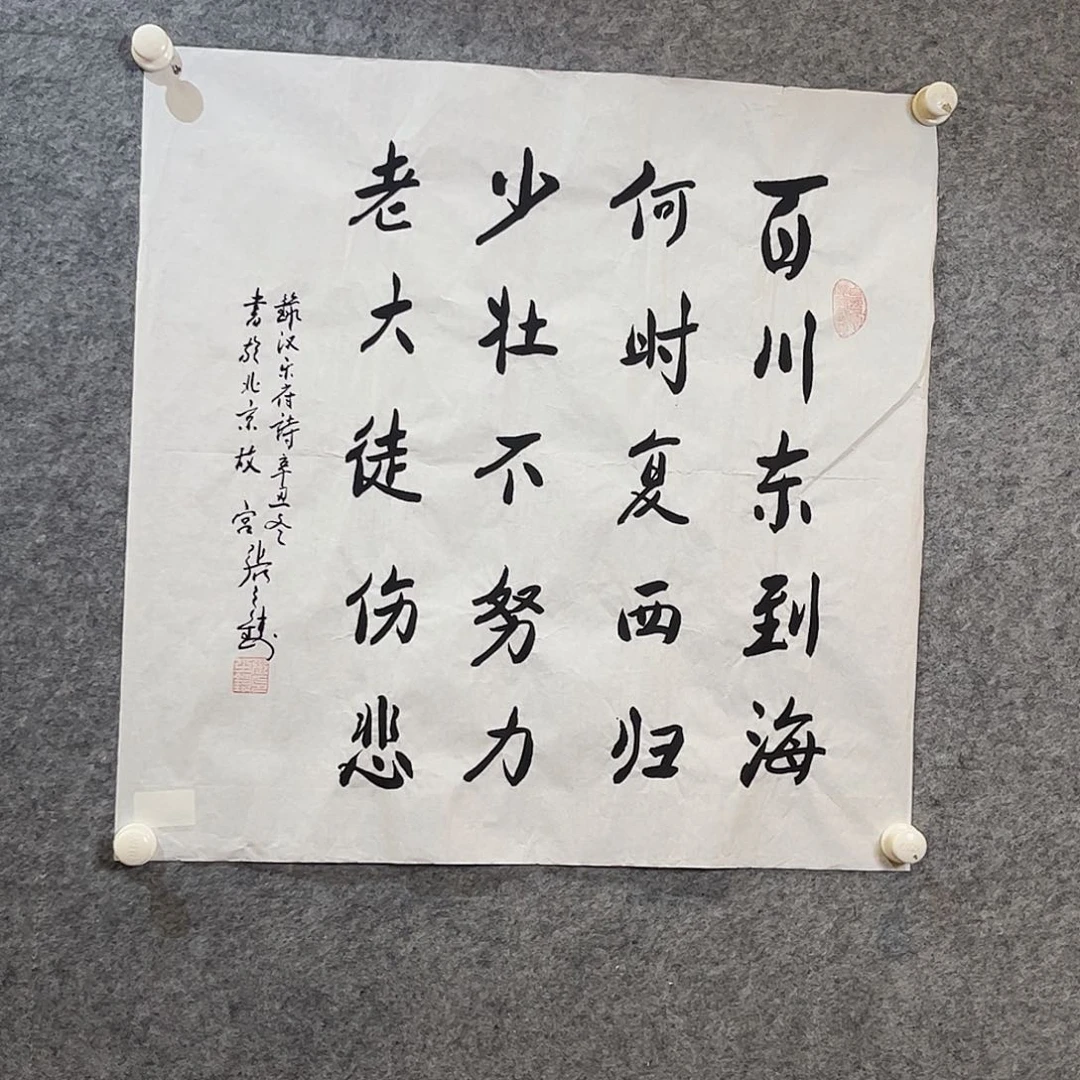 百川东到海
何时复西归
少壮不努力
老大徒伤悲
録汉乐府詩辛丑冬
書於北京故宫張